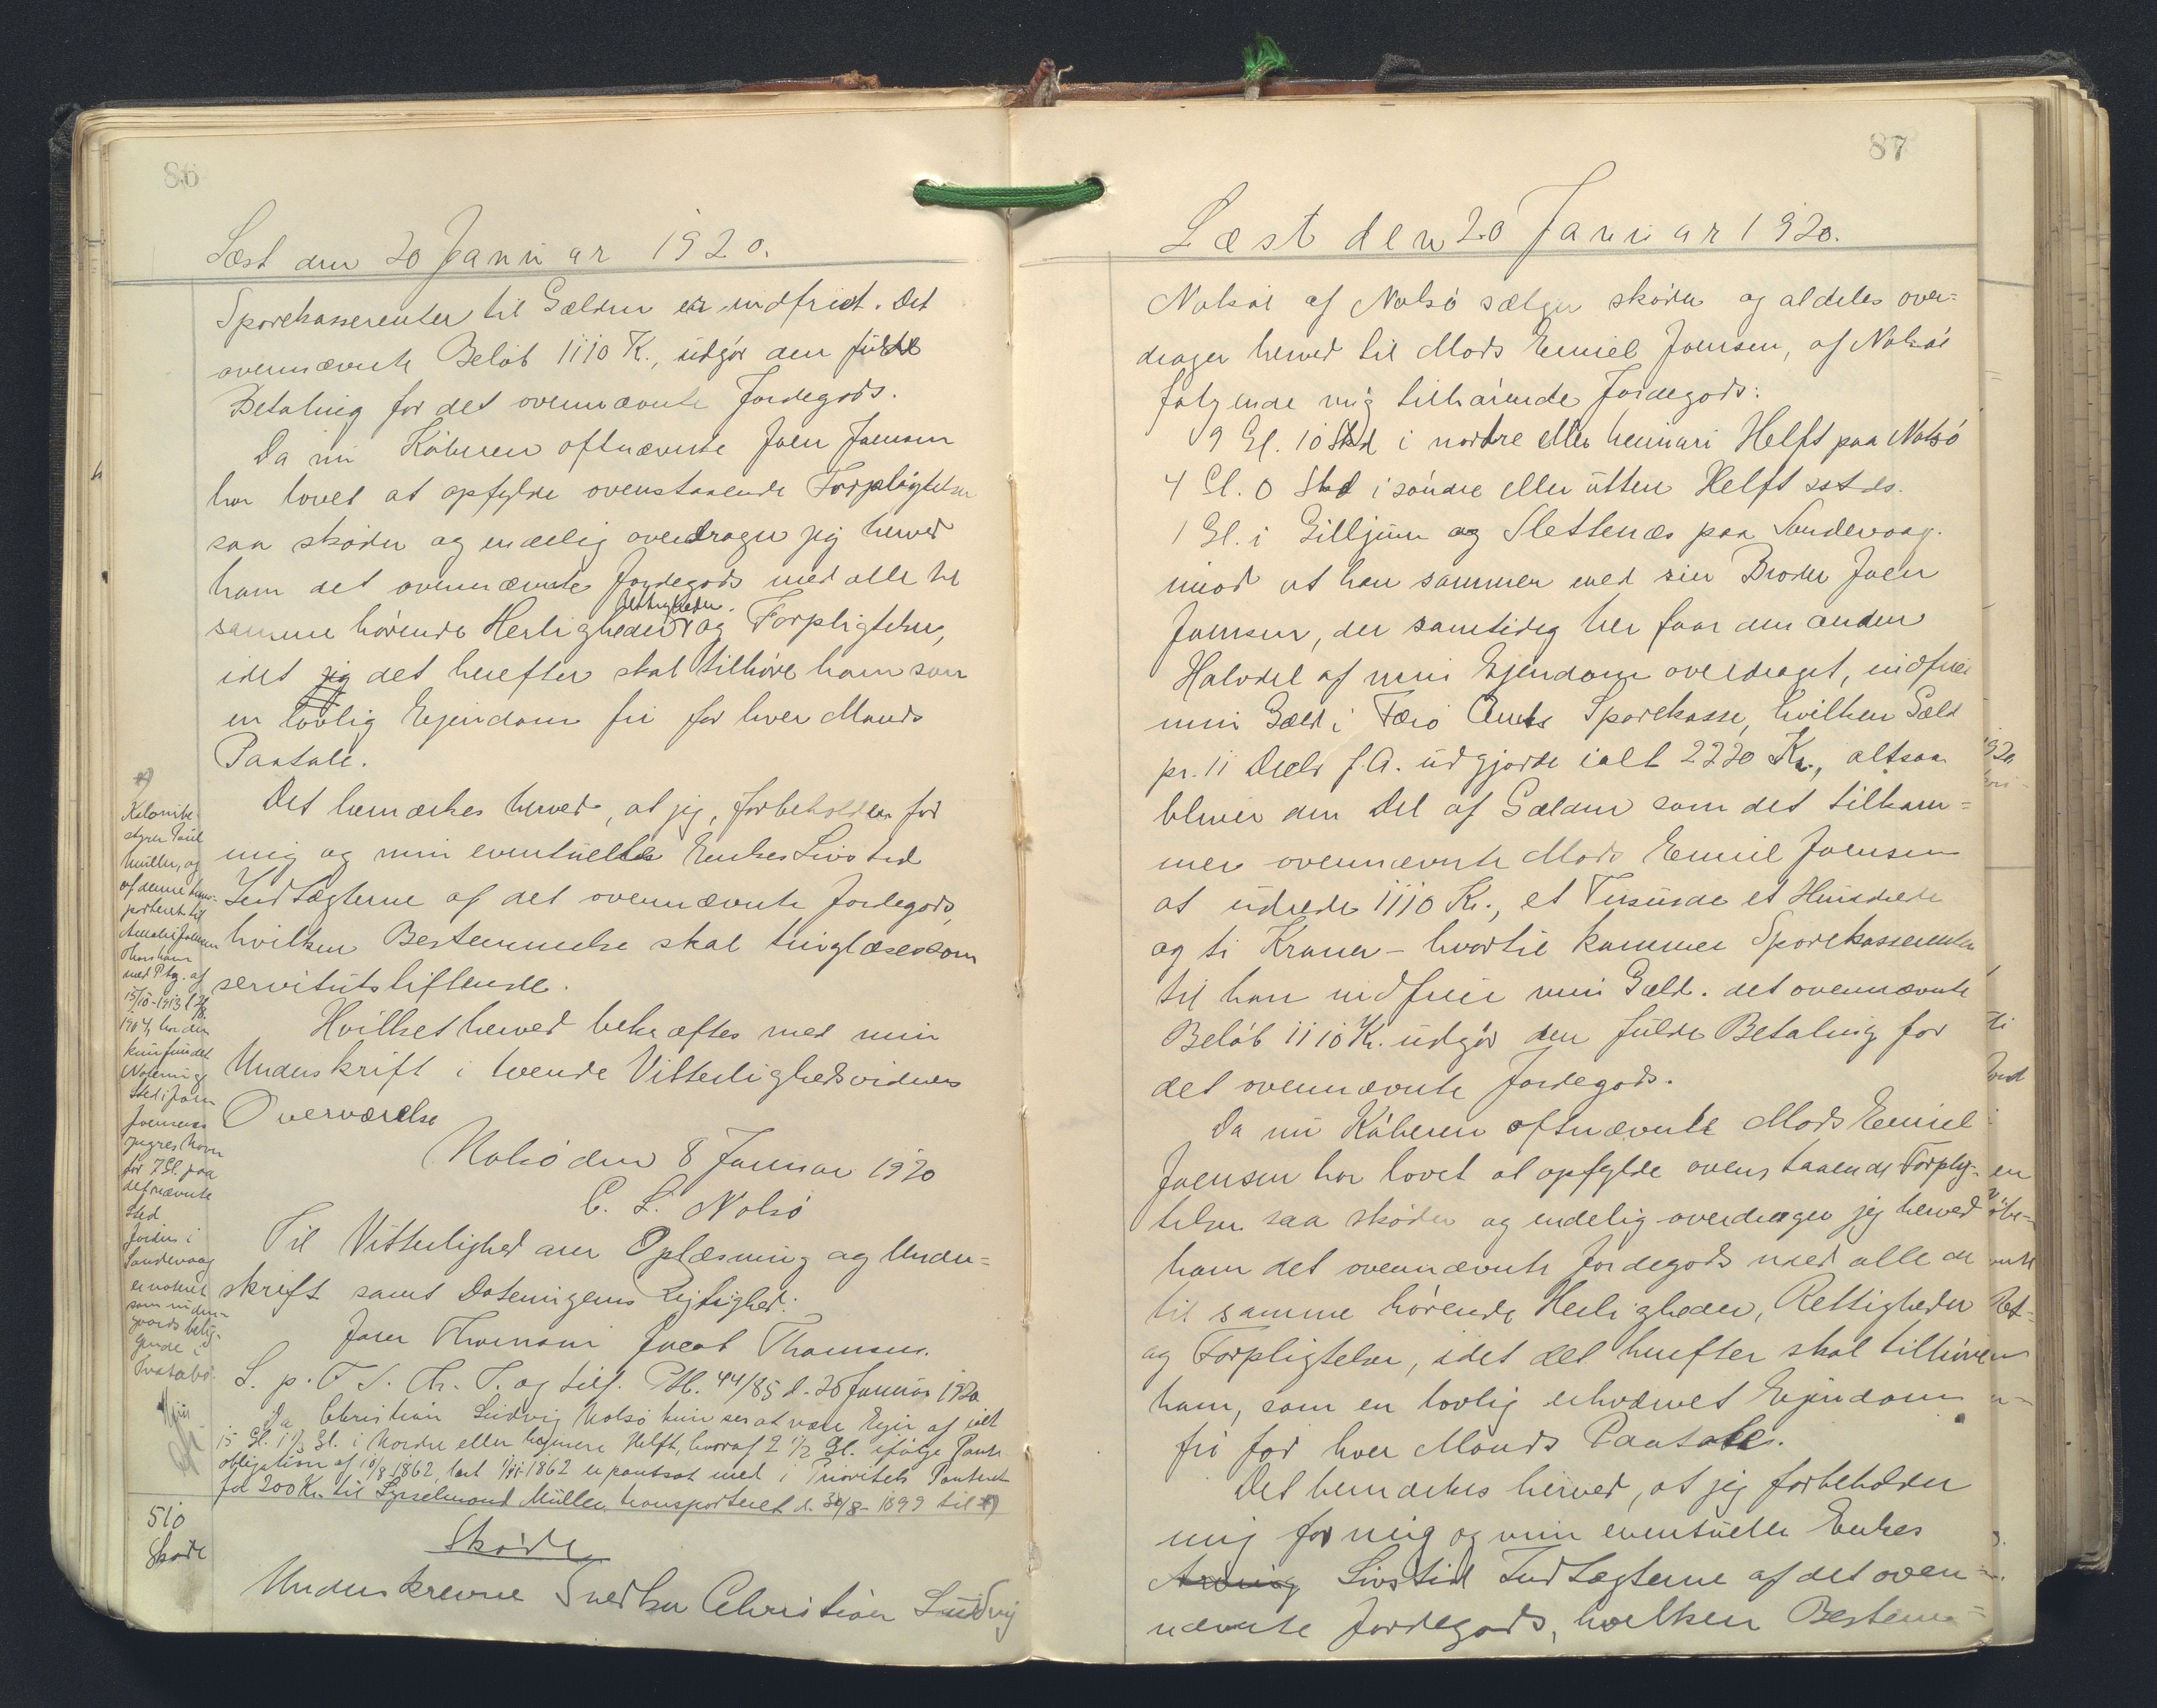 86
Læst den 20 Januar 1920.
Sparekasserenter til Gælden er indfriet. Det
ovennævnte Beløb 1110 K., udgør den fulde
Betaling for det ovennævnte Jordegods.
Da nu Køberen oftnævnte Joen Joensen
har lovet at opfylde ovenstaaende Forpligtelser
saa skøder og endelig overdrager jeg herved
ham det ovennævnte Jordegods med alle til
samme hørende Herligheder, Rettigheder og Forpligtelser,
idet jeg det herefter skal tilhøre ham som
en lovlig Ejendom fri for hver Mands
Paatale.
Det bemærkes herved, at jeg, forbeholder for
mig og min eventuelle Enkes Livstid
Indtægterne af det ovennævnte Jordegods,
hvilken Bestemmelse skal tinglæses som
servitutstiftende.
Hvilket herved bekræftes med min
Underskrift i tvende Vitterlighedsvidners
Overværelse
Nolsø den 8 Januar 1920
C. L. Nolsø
Til Vitterlighed om Oplæsning og Under=
skrift samt Dateringens Rigtighed:
Joen Thomsen Jacob Thomsen.
L. p. F. S. Th. T. og tilf. Ptb. 44/85 d. 20 Januar 1920
Da Christian Ludvig Nolsø kun ses at være Ejer af ialt
15 Gl. 1 1/3 Sk. i Nordre eller heimere Helft, hvoraf 2 1/2 Gl. ifølge Pante
obligation af 10/8 1862, læst 1862 er pantsat med i Prioritets Panteret
for 200 Kr. til Sysselmand Müller, transporteret d. 30/8 1899 til *)
*)
Kolonibe-
styrer Poul
Müller, og
af denne trans-
porteret til
Joensen
Thorshavn
med Ptg. af
15/10-1913
har den
kun fundet
Notering
Sted i Joen
Joensens
yngres Navn
for 7 Gl. paa
det nævnte
Sted
Jorden i
Sandevaag
er noteret
som inden-
gaards belig-
gende i
Tvatabø.
510
Skøde
Skøde
Underskrevne Snedker Christian Ludvig
87
Læst den 20 Januar 1920.
Nolsøe af Nolsø sælger skøder og aldeles over=
drager herved til Mads Emiel Joensen, af Nolsøe
følgende mig tilhørende Jordegods:
9 Gl. 10 Skd i nordre eller heimari Helft paa Nolsø
4 Gl. 0 Skd i søndre eller utten Helft sstds.
1 Gl. i Gilljum og Slettenæs paa Sandevaag.
imod at han sammen med sin Broder Joen
Joensen, der samtidig her faar den anden
Halvdel af min Ejendom overdraget, indfrier
min Gæld i Færø Amts Sparekasse, hvilken Gæld
pr. 11 Decbr f.A. udgjorde ialt 2220 Kr., altsaa
bliver den Del af Gælden som det tilkom=
mer ovennævnte Mads Emiel Joensen
at udrede 1110 Kr., et Tusinde et Hundrede
og ti Kroner - hvortil kommer Sparekasserenter
til han indfrier min Gæld. det ovennævnte
Beløb 1110 Kr. udgør den fulde Betaling for
det ovennævnte Jordegods.
Da nu Køberen oftnævnte Mads Emiel
Joensen har lovet at opfylde ovenstaaende Forplig-
telser saa skøder og endelig overdrager jeg herved
ham det ovennævnte Jordegods med alle de
til samme hørende Herligheder, Rettigheder
og Forpligtelser, idet det herefter skal tilhøre
ham, som en lovlig erhvervet Ejendom
fri for hver Mands Paatale.
Det bemærkes herved, at jeg forbeholder
mig for mig og min eventuelle Enkes
Livstid Indtægterne af det oven=
nævnte Jordegods, hvilken Bestem=